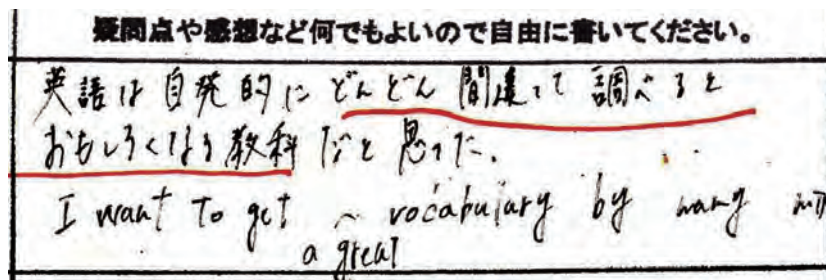 疑問点や感想など何でもよいので自由に書いてください。
英語は自発的にどんどん間違って調べると
おもしろくなる教科だと思った。
I want to get a great vocabulary by